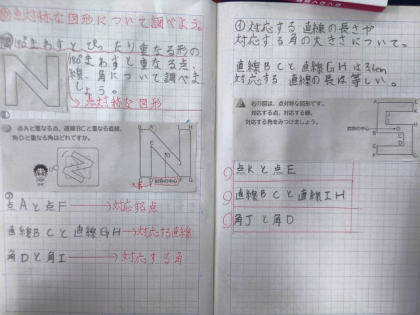 点対称な図形について調べよう。
180°まわすとぴったり重なる形の
180°まわすと重なる点、
線、角について調べま
しょう。
点対称な図形
点Aと重なる点、直線BCと重なる直線、
角Dと重なる角はどれですか。
対称の中心
点Aと点F→対応する点
直線BCと直線GH→対応する直線
角Dと角I→対応する角
対応する直線の長さや
対応する角の大きさについて。
直線BCと直線GHは3cm
対応する直線の長は等しい。
右の図は、点対称な図形です。
対応する点、対応する直線、
対応する角をみつけましょう。
対称の中心
点Kと点E
直線BCと直線IH
角Jと角D